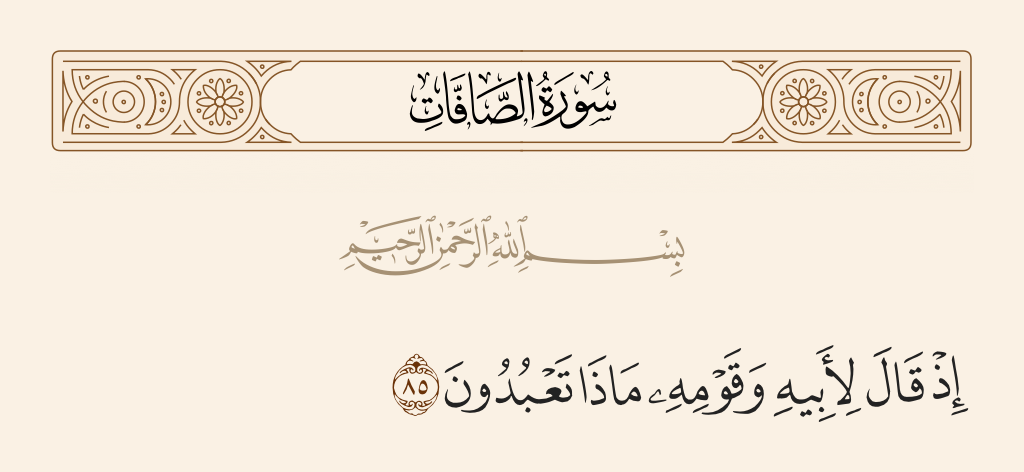 سُورَةُ الصَّافَّاتِ
بِسْمِ ٱللَّهِ ٱلرَّحْمَٰنِ ٱلرَّحِيمِ
إِذْ قَالَ لِأَبِيهِ وَقَوْمِهِۦ مَاذَا تَعْبُدُونَ ٨٥